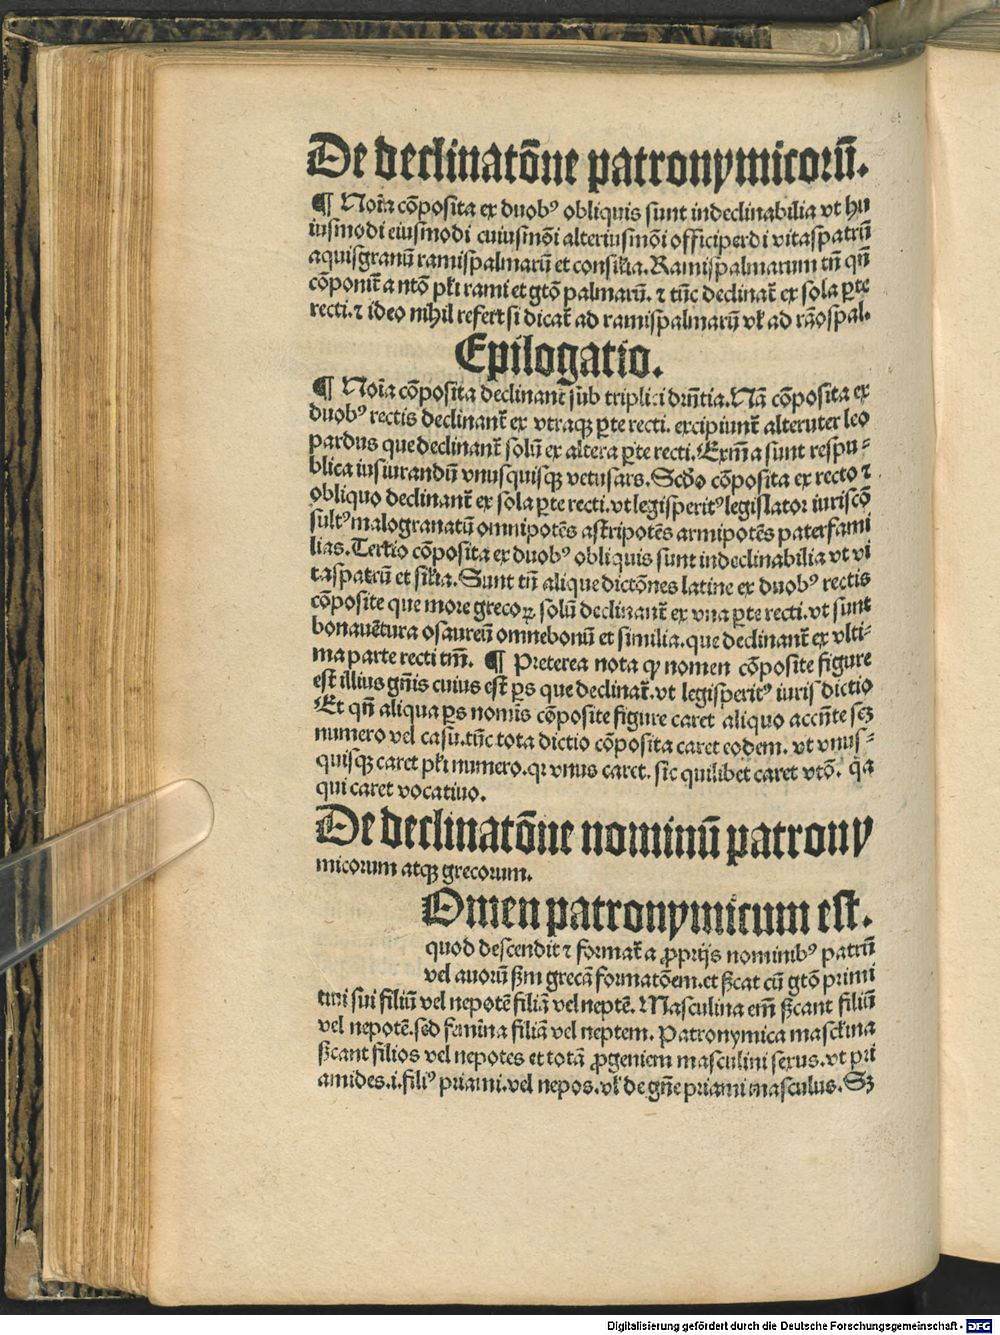 De declinatōne patronymicorū.
¶ Noīa cōposita ex duobꝰ obliquis sunt indeclinabilia vt hu
iusmodi eiusmodi cuiusmōi alteriusmōi officiperdi vitaspatrū
aquisgranū ramispalmarū et consilia. Ramispalmarum tn̄ qn̄
cōponit̄ a ntō pl̄i rami et gtō palmarū. ⁊ tūc declinat̄ ex sola ꝑte
recti. ⁊ ideo nihil refert si dicat̄ ad ramispalmarū vl̓ ad rāospal.
Epilogatio.
¶ Noīa cōposita declinant̄ sub triplici drn̄tia. Nā cōposita ex
duobꝰ rectis declinant̄ ex vtraqꝫ ꝑte recti. excipiunt̄ alteruter leo
pardus que declinant̄ solū ex altera ꝑte recti. Exm̄a sunt respu⸗
blica iusiurandū vnusquisqꝫ vetusars. Scd̓o cōposita ex recto ⁊
obliquo declinant̄ ex sola ꝑte recti. vt legisperitꝰ legislator iuriscō
sultꝰ malogranatū omnipotēs astripotēs armipotēs paterfami
lias. Tertio cōposita ex duobꝰ obliquis sunt indeclinabilia vt vi
taspatrū et sil̓ia. Sunt tn̄ alique dictōnes latine ex duobꝰ rectis
cōposite que more grecoꝝ solū declinant̄ ex vna ꝑte recti. vt sunt
bonauētura osaureū omnebonū et similia. que declinant̄ ex vlti⸗
ma parte recti tm̄. ¶ Preterea nota ꝙ nomen cōposite figure
est illius gn̄is cuius est ꝑs que declinat̄. vt legisperitꝰ iuris dictio
Et qn̄ aliqua ꝑs nomīs cōposite figure caret aliquo accn̄te scꝫ
numero vel casu. tūc tota dictio cōposita caret eodem. vt vnus⸗
quisqꝫ caret pl̄i numero. qꝛ vnus caret. sic quilibet caret vtō. q̄a
qui caret vocatiuo.
De declinatōne nominū patrony
micorum atqꝫ grecorum.
Omen patronymicum est.
quod descendit ⁊ format̄ a ꝓprijs nominibꝰ patrū
vel auorū ẜm grecā formatōem. et ẜcat cū gtō primi
tiui sui filiū vel nepotē filiā vel neptē. Masculina em̄ ẜcant filiū
vel nepotē. sed feminīa filiā vel neptem. Patronymica mascl̓ina
ẜcant filios vel nepotes et totā ꝓgeniem masculini sexus. vt pri
amides. i. filiꝰ priami. vel nepos. vl̓ de gn̄e priami masculus. Sꝫ
Digitalisierung gefördert durch die Deutsche Forschungsgemeinschaft - DFG